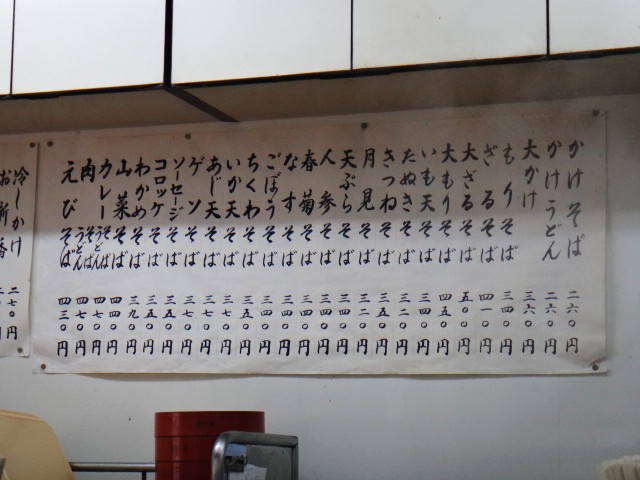 かけそば 二六〇円
かけうどん 二六〇円
大かけ 三六〇円
もりそば 三四〇円
ざるそば 四一〇円
大ざるそば 五〇〇円
大もりそば 四五〇円
いも天そば 三二〇円
たぬきそば 三二〇円
きつねそば 三五〇円
月見そば 三二〇円
天ぷらそば 三四〇円
人参そば 三四〇円
春菊そば 三四〇円
なすそば 三四〇円
ごぼうそば 三四〇円
ちくわそば 三五〇円
いか天そば 三七〇円
あじ天そば 三七〇円
ゲソそば 三七〇円
ソーセージそば 三五〇円
コロッケそば 三五〇円
わかめそば 三九〇円
山菜そば 四四〇円
カレーそばうどん 四七〇円
肉そばうどん 四七〇円
えびそば 四三〇円
冷しかけ 二七〇円
お新香 円